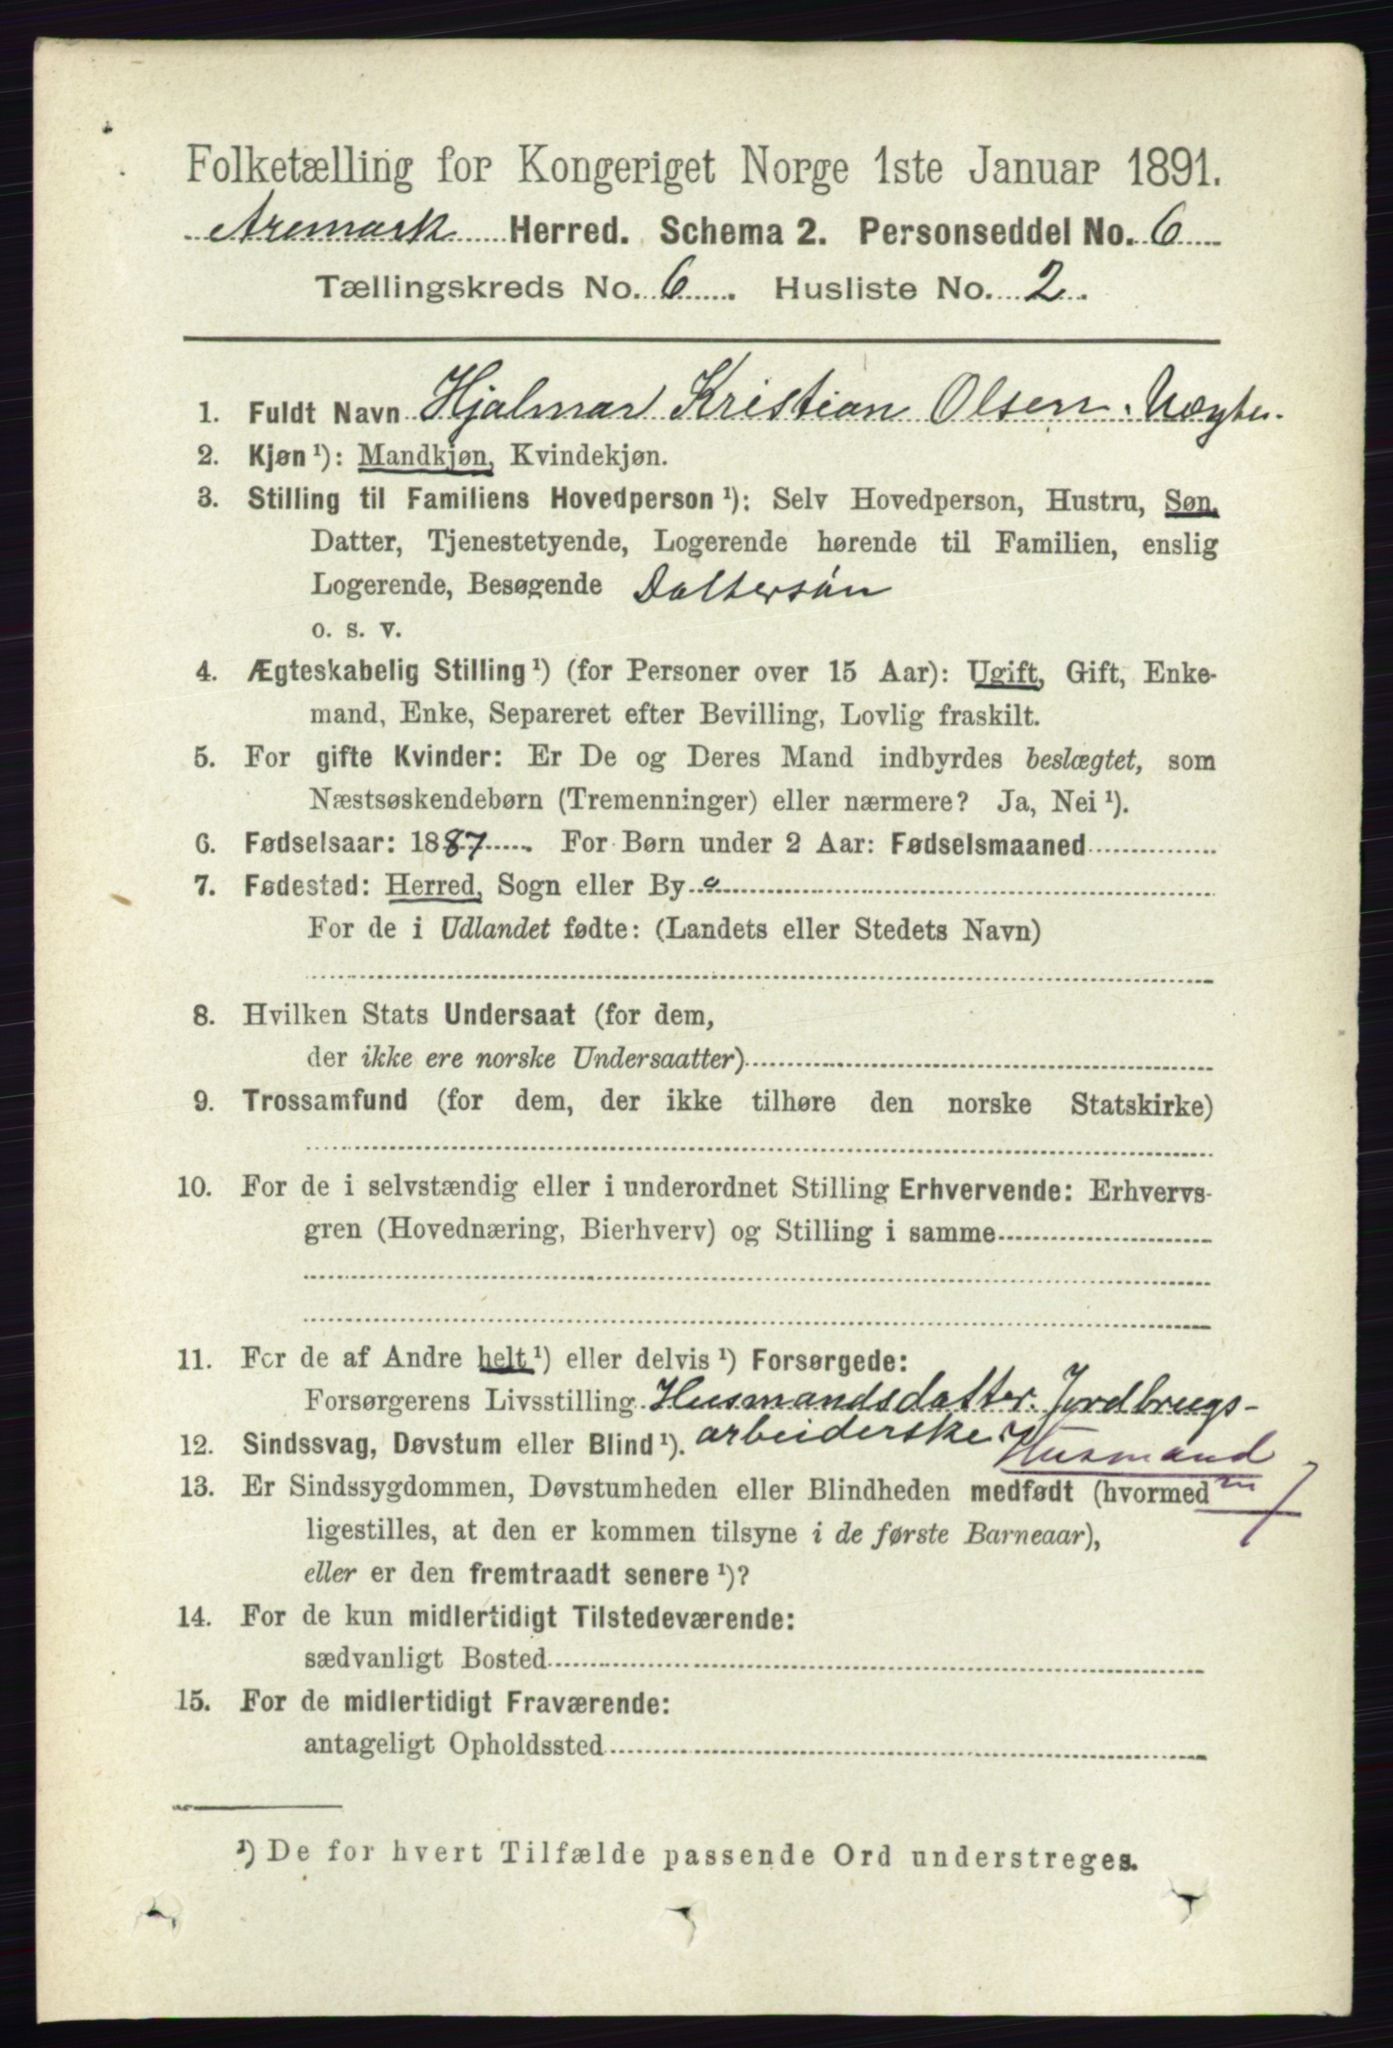 Folketælling for Kongeriget Norge 1ste Januar 1891.
Aremark Herred. Schema 2. Personseddel No. 6
Tællingskreds No. 6. Husliste No. 2.
1. Fuldt Navn Hjalmar Kristian Olsen. Uægte.
2. Kjøn ¹): Mandkjøn, Kvindekjøn.
3. Stilling til Familiens Hovedperson ¹): Selv Hovedperson, Hustru, Søn,
Datter, Tjenestetyende, Logerende hørende til Familien, enslig
Logerende, Besøgende Dattersøn
o. s. v.
4. Ægteskabelig Stilling ¹) (for Personer over 15 Aar): Ugift, Gift, Enke-
mand, Enke, Separeret efter Bevilling, Lovlig fraskilt.
5. For gifte Kvinder: Er De og Deres Mand indbyrdes beslægtet, som
Næstsøskendebørn (Tremenninger) eller nærmere? Ja, Nei ¹).
6. Fødselsaar: 1887. For Børn under 2 Aar: Fødselsmaaned
7. Fødested: Herred, Sogn eller By
For de i Udlandet fødte: (Landets eller Stedets Navn)
8. Hvilken Stats Undersaat (for dem,
der ikke ere norske Undersaatter)
9. Trossamfund (for dem, der ikke tilhøre den norske Statskirke)
10. For de i selvstændig eller i underordnet Stilling Erhvervende: Erhvervs-
gren (Hovednæring, Bierhverv) og Stilling i samme
11. For de af Andre helt ¹) eller delvis ¹) Forsørgede:
Forsørgerens Livsstilling Husmandsdatter. Jordbrugs-
arbeiderske
12. Sindssvag, Døvstum eller Blind ¹). Husmand
13. Er Sindssygdommen, Døvstumheden eller Blindheden medfødt (hvormed
ligestilles, at den er kommen tilsyne i de første Barneaar),
eller er den fremtraadt senere ¹)?
14. For de kun midlertidigt Tilstedeværende:
sædvanligt Bosted
15. For de midlertidigt Fraværende:
antageligt Opholdssted
¹) De for hvert Tilfælde passende Ord understreges.